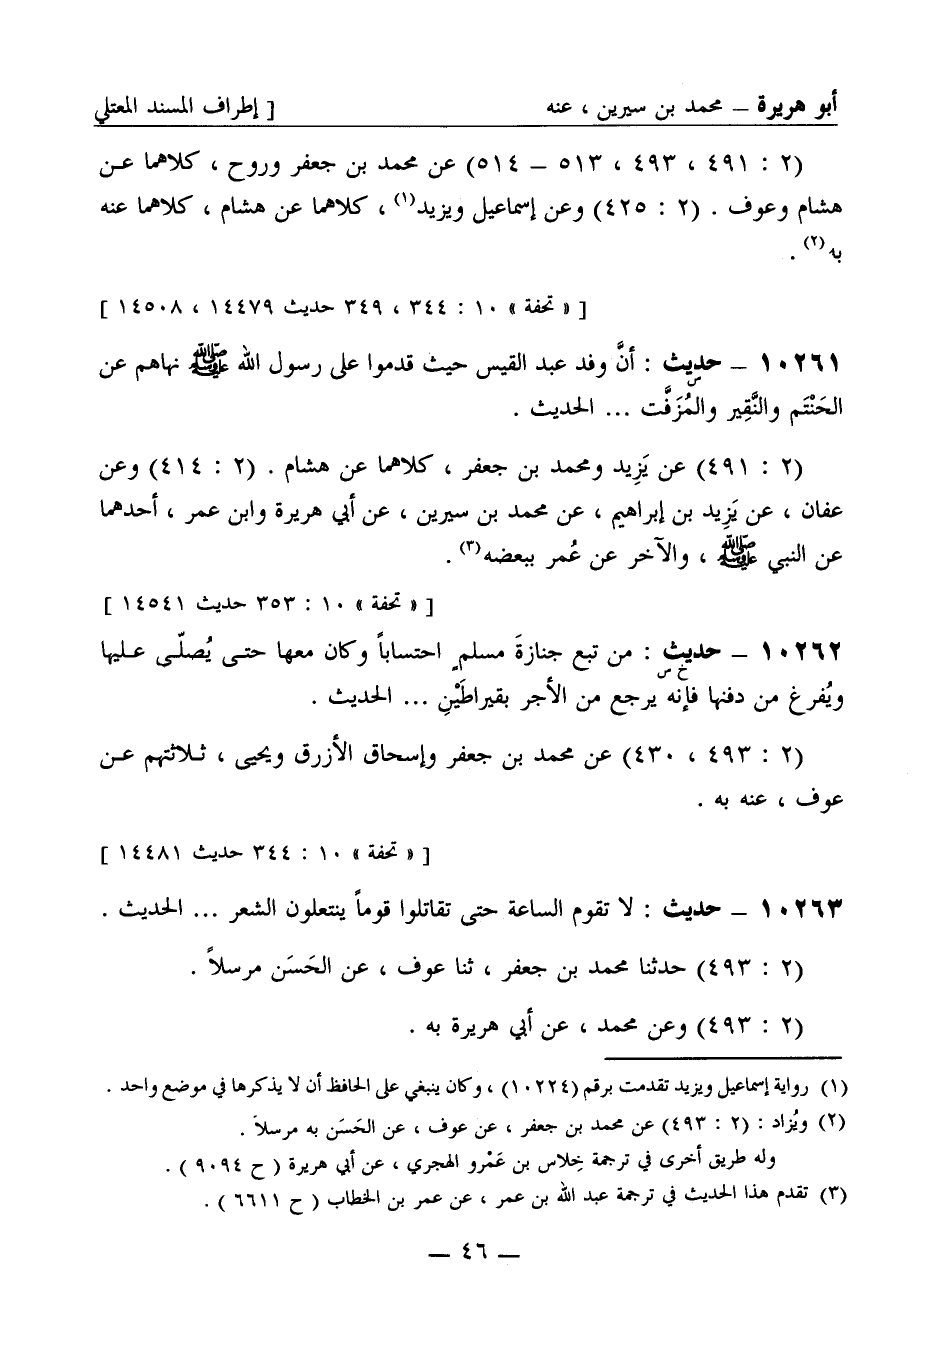 أبو هريرة ــ محمد بن سيرين ، عنه [ إطراف المسند المعتلي
(٢ : ٤٩١ ، ٤٩٣ ، ٥١٣ ــ ٥١٤) عن محمد بن جعفر وروح ، كلاهما عن
هشام وعوف . (٢ : ٤٢٥) وعن إسماعيل ويزيد(١) ، كلاهما عن هشام ، كلاهما عنه
به(٢) .
[ « تحفة » ١٠ : ٣٤٤ ، ٣٤٩ حديث ١٤٤٧٩ ، ١٤٥٠٨ ]
١٠٢٦١ ــ حديث : أنَّ وفد عبد القيس حيث قدموا على رسول الله ﷺ نهاهم عن
س
الحَنْتَم والنَّقِير والمُزَفَّت ... الحديث .
(٢ : ٤٩١) عن يَزِيد ومحمد بن جعفر ، كلاهما عن هشام . (٢ : ٤١٤) وعن
عفان ، عن يَزِيد بن إبراهيم ، عن محمد بن سيرين ، عن أبي هريرة وابن عمر ، أحدهما
عن النبي ﷺ ، والآخر عن عُمر ببعضه(٣) .
[ « تحفة » ١٠ : ٣٥٣ حديث ١٤٥٤١ ]
١٠٢٦٢ ــ حديث : من تبع جنازةَ مسلمٍ احتساباً وكان معها حتى يُصلّى عليها
خ س
ويُفرغ من دفنها فإنه يرجع من الأجر بقيراطَيْنِ ... الحديث .
(٢ : ٤٩٣ ، ٤٣٠) عن محمد بن جعفر وإسحاق الأزرق ويحيى ، ثلاثتهم عن
عوف ، عنه به .
[ « تحفة » ١٠ : ٣٤٤ حديث ١٤٤٨١ ]
١٠٢٦٣ ــ حديث : لا تقوم الساعة حتى تقاتلوا قوماً ينتعلون الشعر ... الحديث .
(٢ : ٤٩٣) حدثنا محمد بن جعفر ، ثنا عوف ، عن الحَسَن مرسلاً .
(٢ : ٤٩٣) وعن محمد ، عن أبي هريرة به .
(١) رواية إسماعيل ويزيد تقدمت برقم (١٠٢٢٤) ، وكان ينبغي على الحافظ أن لا يذكرها في موضع واحد .
(٢) ويُزاد : (٢ : ٤٩٣) عن محمد بن جعفر ، عن عوف ، عن الحَسَن به مرسلاً .
وله طريق أخرى في ترجمة خِلاس بن عَمْرو الهجري ، عن أبي هريرة ( ح ٩٠٩٤ ) .
(٣) تقدم هذا الحديث في ترجمة عبد الله بن عمر ، عن عمر بن الخطاب ( ح ٦٦١١ ) .
ــ ٤٦ ــ